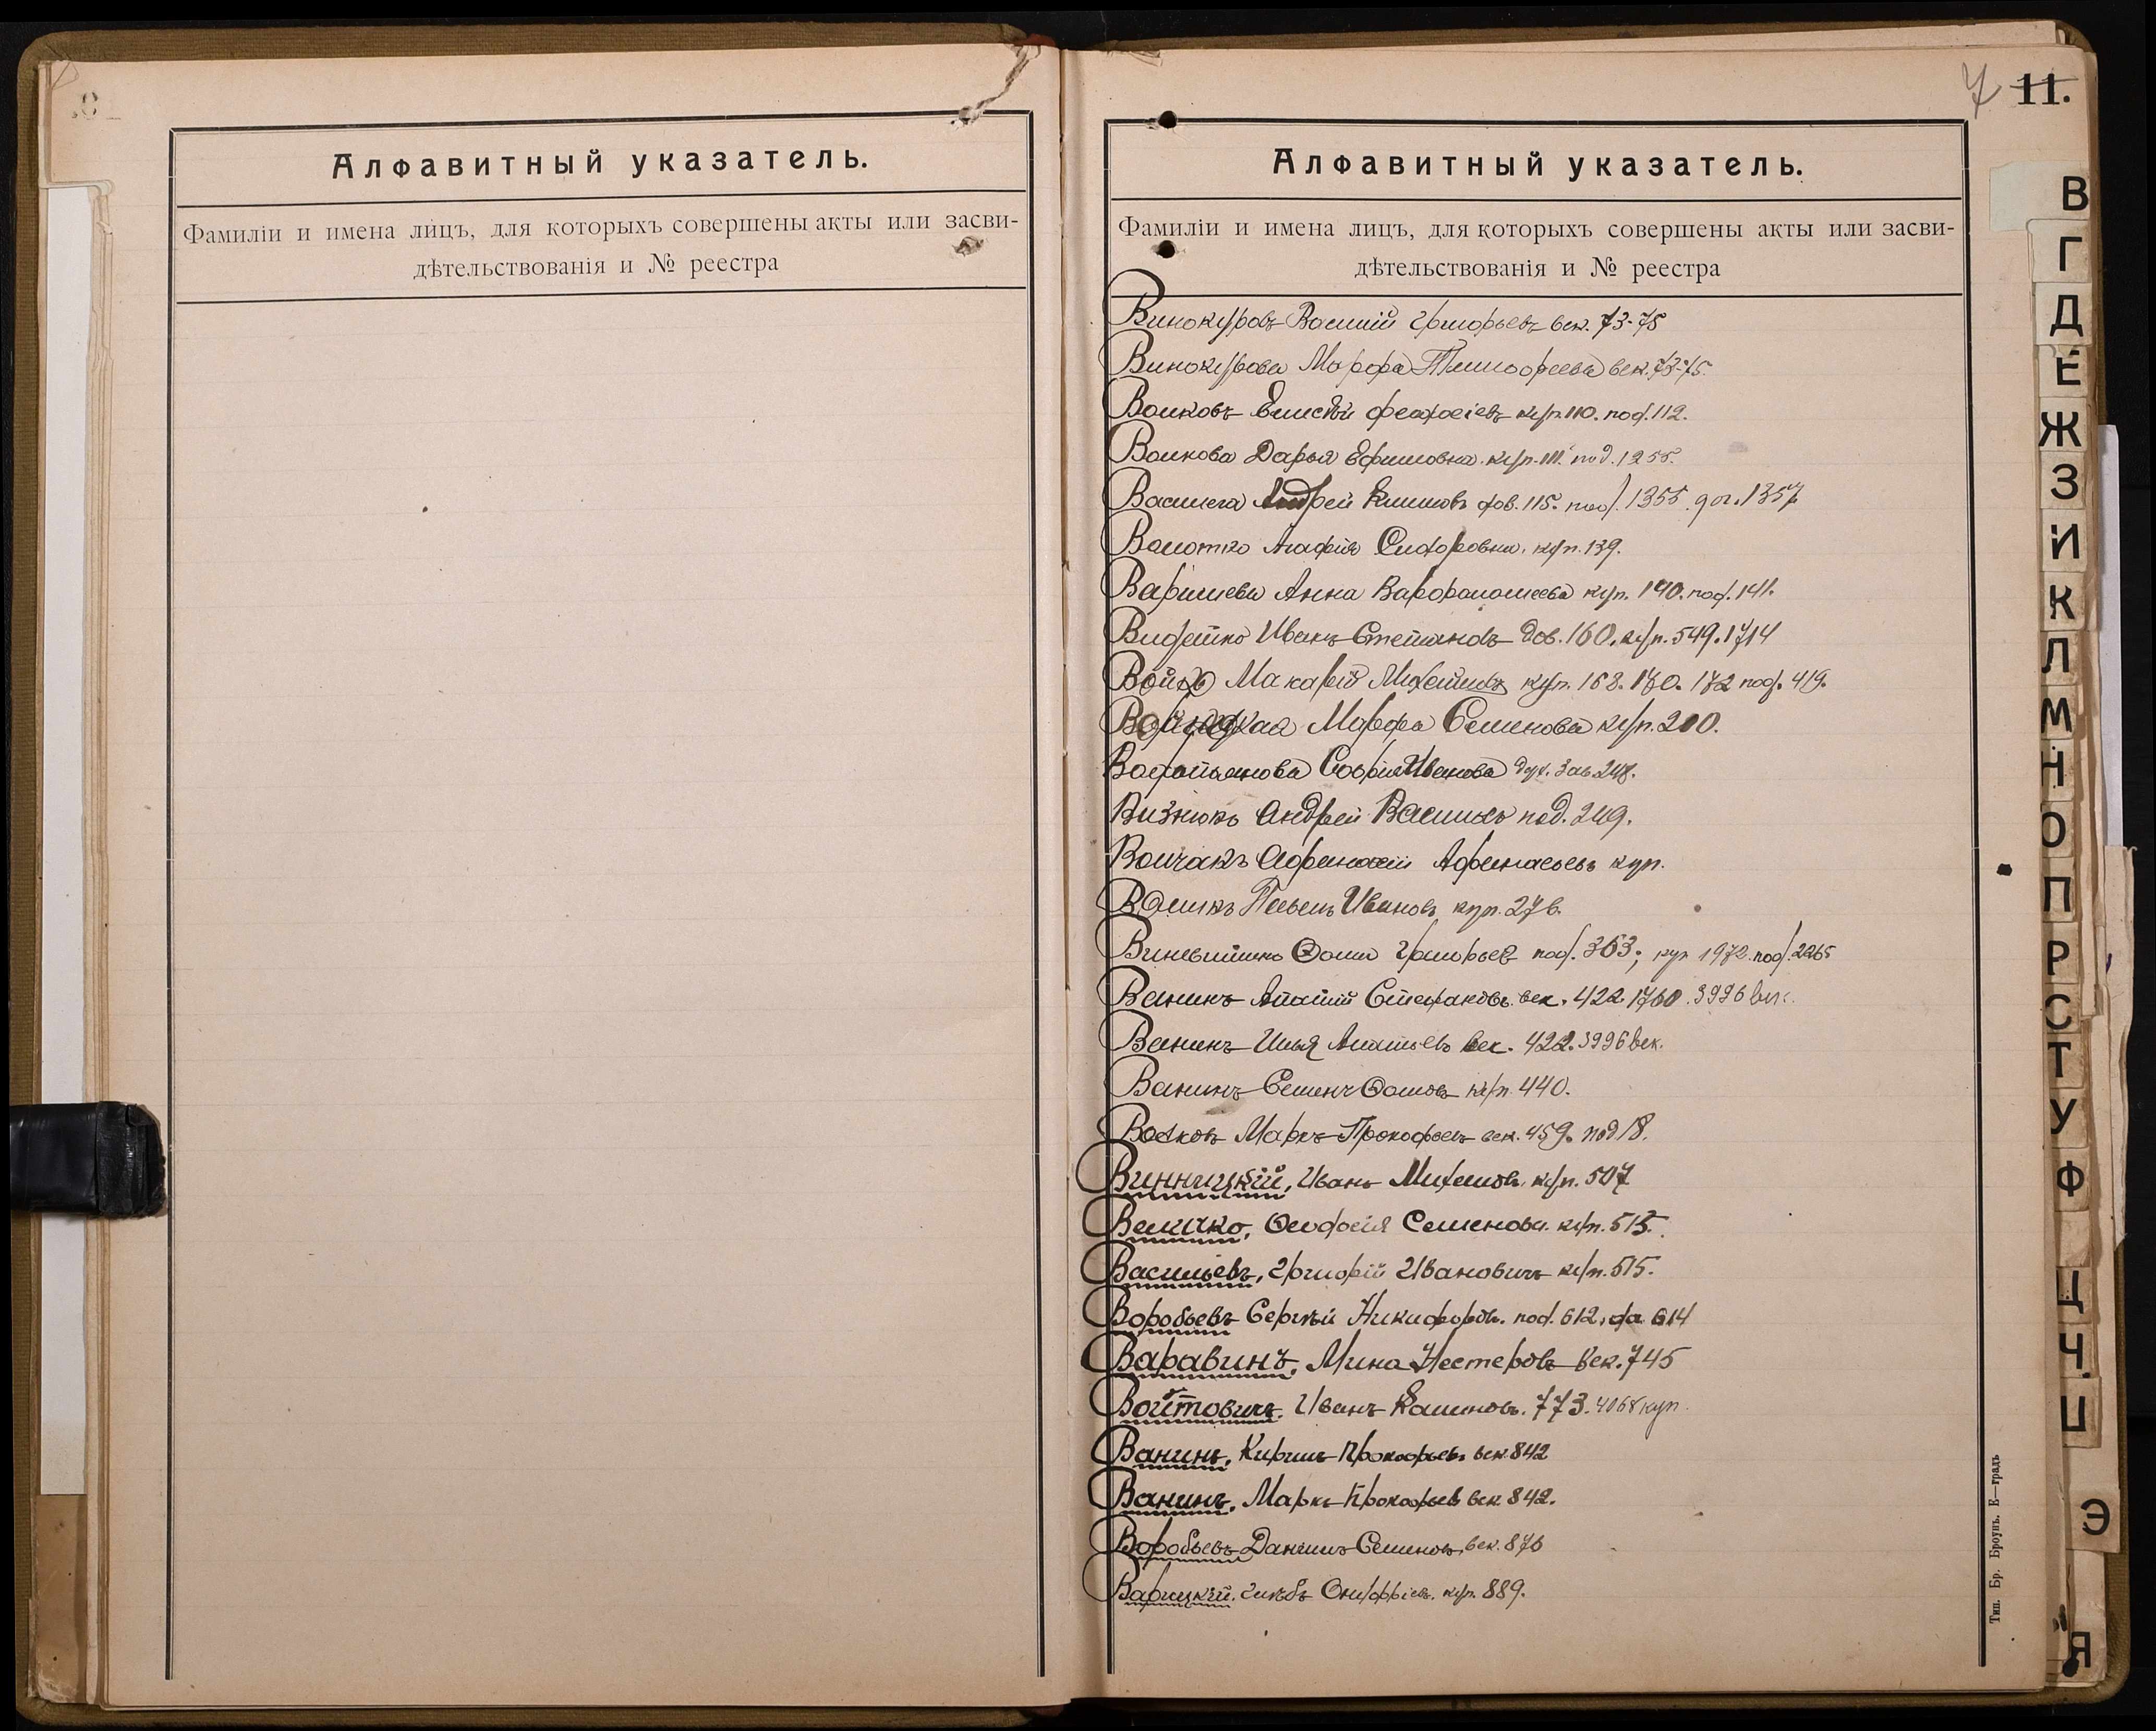 Алфавитный указатель.
Фамиліи и имена лицъ, для которыхъ совершены акты или засви-
дѣтельствованія и № реестра
7 11.
Алфавитный указатель.
Фамиліи и имена лицъ, для которыхъ совершены акты или засви-
дѣтельствованія и № реестра
Винокуровъ Василій Григорьевъ век. 73-75
Винокурова Марфа Тимофеева век. 73-75.
Волковъ Елисей Феодосіевъ куп. 110. под. 112.
Волкова Дарья Ефимовна куп. 111. под. 1255.
Андрей Климовъ дов. 115. 1355. 1357
Агафія Сидоровна. куп. 139.
Анна Варфоломеева куп. 140. под. 141.
Иванъ Степановъ дов. 160. куп. 549. 1714
Макарій куп. 168. 170. 172 под. 419.
Марфа Семенова куп. 200.
Софія Иванова дух. зав. 248.
Визнюкъ Андрей Васильевъ под. 249.
Волчакъ Афанасій Афанасьевъ куп.
Иванов куп. 276.
Фома Григорьев под. 363; куп 1972. под. 2265
Ванинъ век. 422. 1760. 3996 век.
Ванинъ Илья век. 422. 3996 век.
Ванинъ Семенъ Фомовъ куп. 440.
Волковъ Маркъ Прокофьевъ век. 459. под 18.
Винницкій, Иванъ куп. 507
Величко, Феодосія Семенова куп. 515.
Васильевъ, Григорій Ивановичъ куп. 515.
Воробьевъ Сергѣй Никифоровъ. под. 612, да 614
Варавинъ, Мина Нестеровъ век. 745
Войтовичъ. Иванъ 773. 4068 куп.
Ванинъ, Кирилъ Прокофьев. век. 842
Ванинъ, Маркъ Прокофьев век 842.
Воробьевъ Данилъ Семеновъ, век. 876
Варицкій, Глѣбъ Онуфріевъ. куп. 889.
Тип. Бр. Броунъ. Е—градъ
В
Г
Д
Е
Ж
З
И
К
Л
М
Н
О
П
Р
С
Т
У
Ф
Ц
Ч
Э
Я